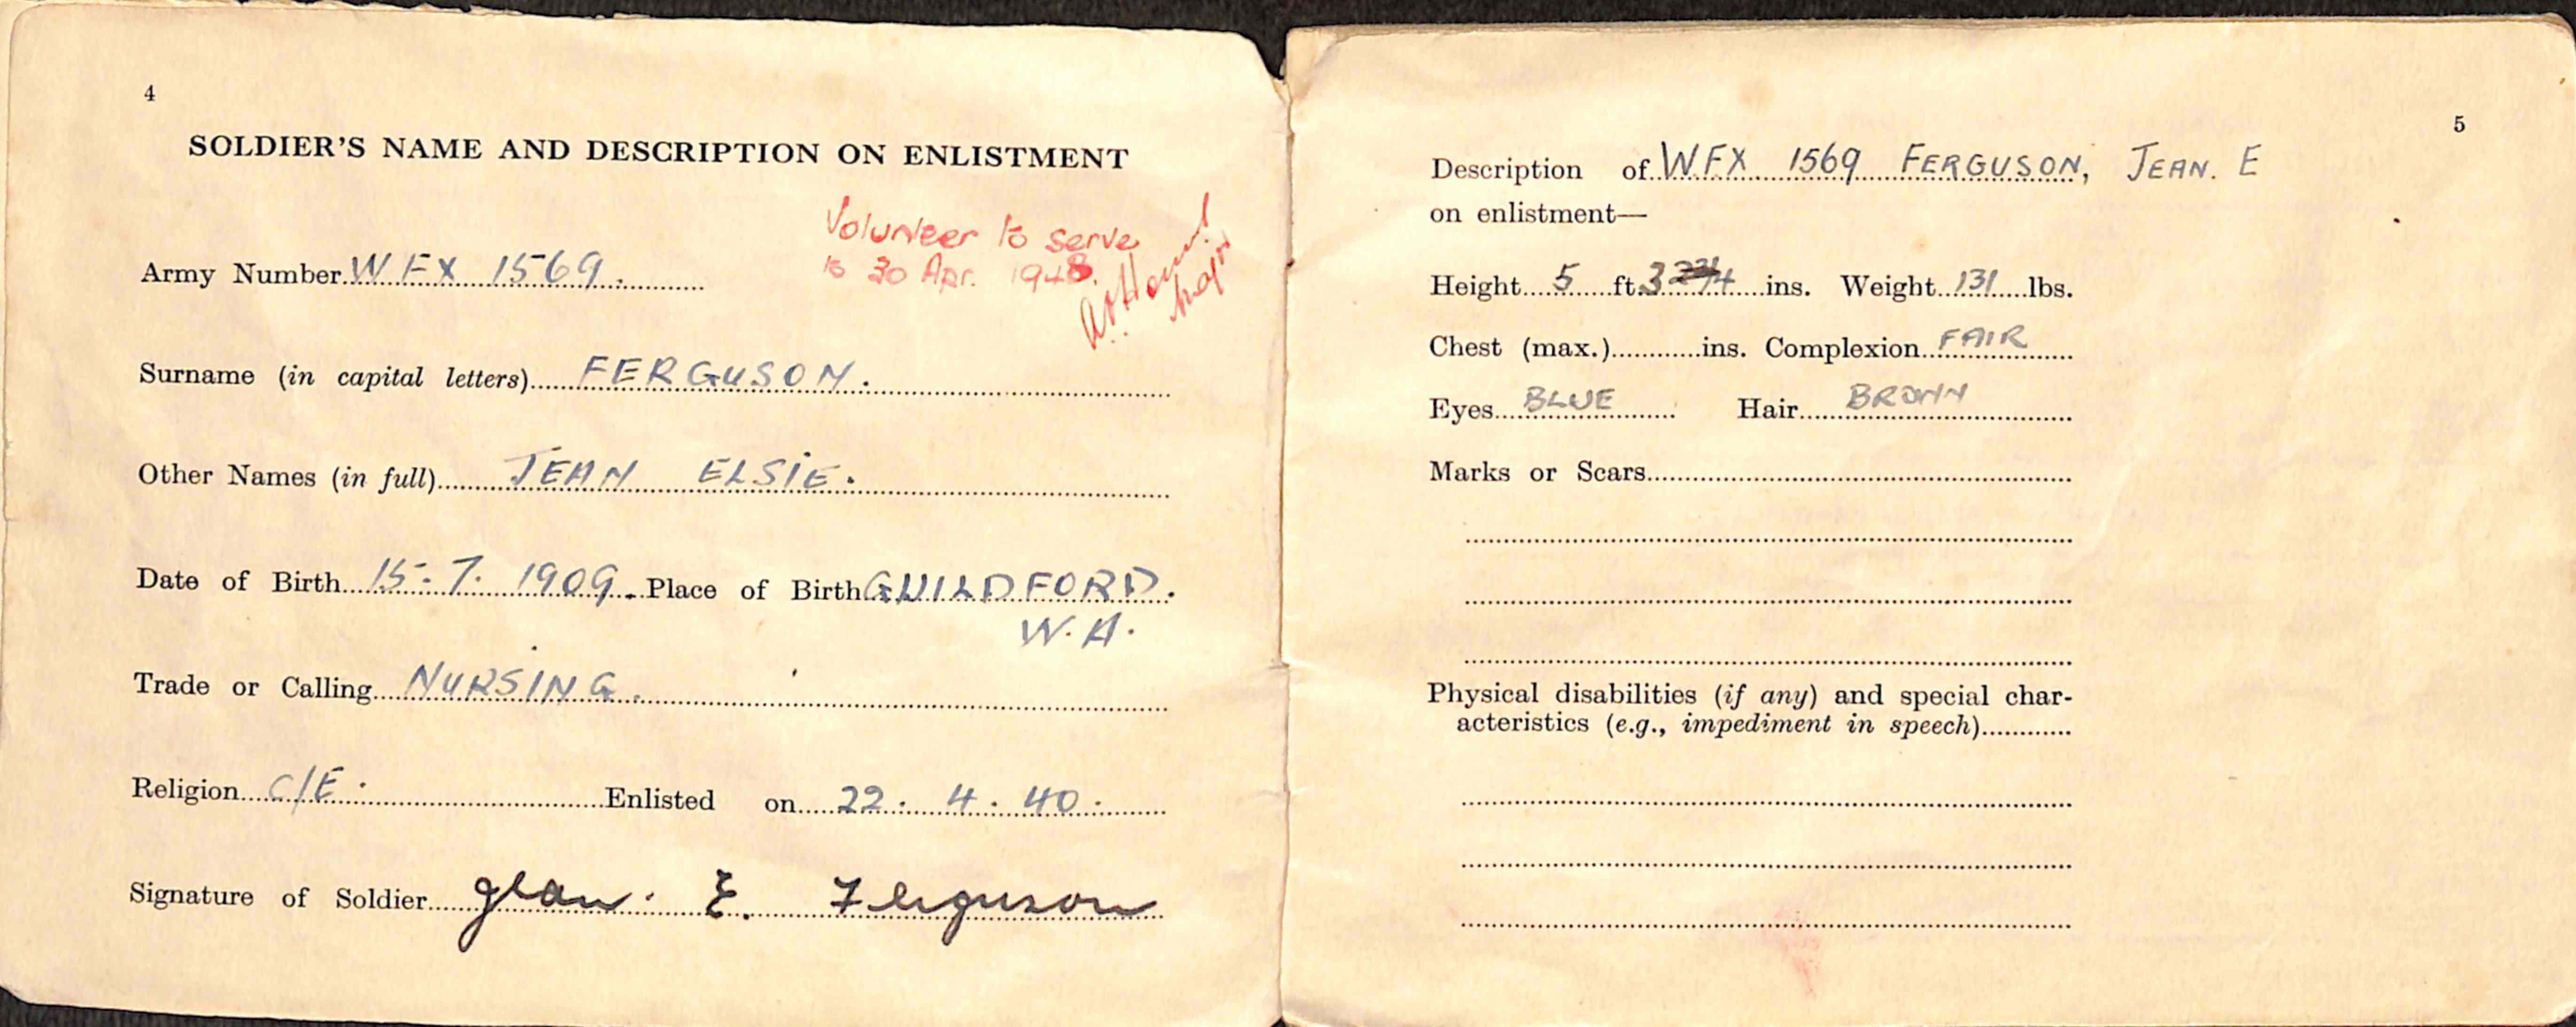 4
SOLDIER'S NAME AND DESCRIPTION ON ENLISTMENT
Volunteer to serve
to 30 Apr. 1948.
Major
Army Number WFX 1569.
Surname (in capital letters) FERGUSON.
Other Names (in full) JEAN ELSIE.
Date of Birth 15. 7. 1909. Place of Birth GUILDFORD.
W.A.
Trade or Calling NURSING.
Religion C/E. Enlisted on 22. 4. 40.
Signature of Soldier Jean. E. Ferguson
5
Description of WFX 1569 FERGUSON, JEAN. E
on enlistment—
Height 5 ft. 3 ins. Weight 131 lbs.
Chest (max.) ins. Complexion FAIR
Eyes BLUE Hair BROWN
Marks or Scars
Physical disabilities (if any) and special char-
acteristics (e.g., impediment in speech)